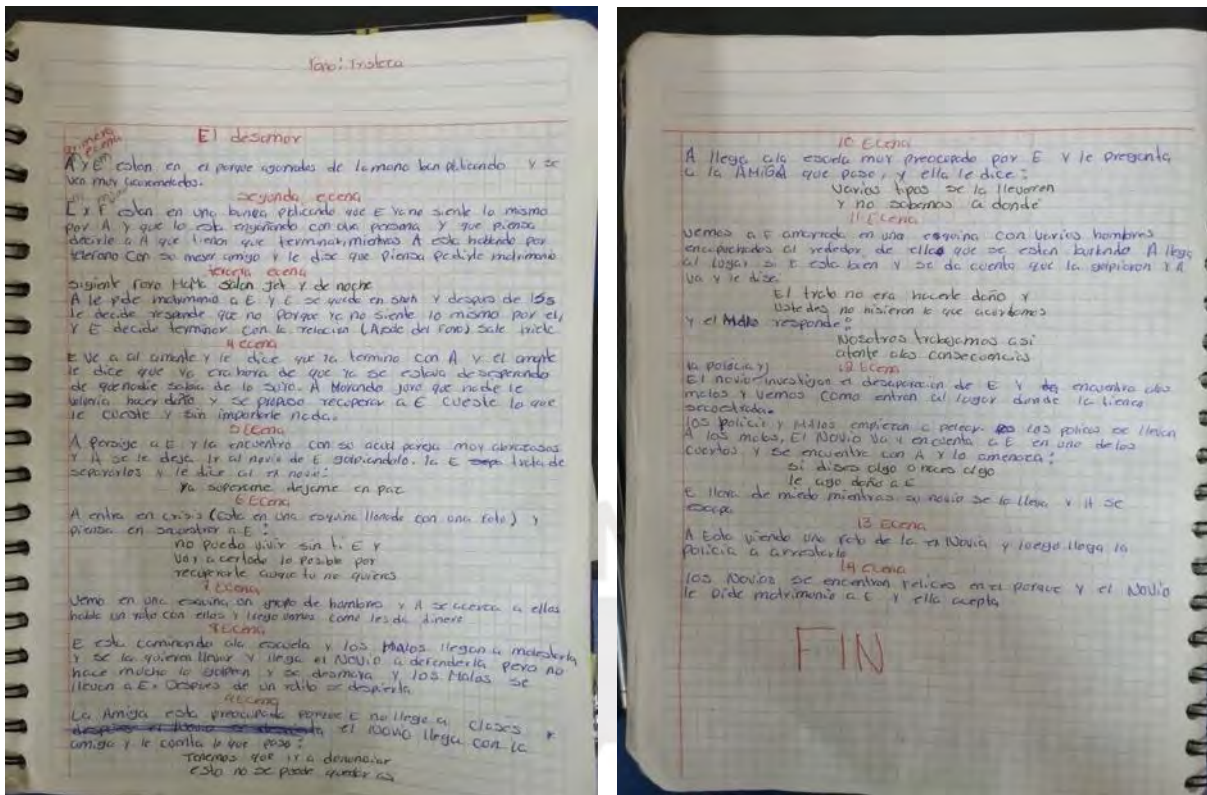 Foro: Tristeza
primera ecena
El desamor
A y E estan en el parque agarrados de la mano ban platicando y se
ven muy enamorados.
segunda ecena
E y F estan en una banca platicando que E ya no siente lo mismo
por A y que lo esta engañando con otra persona y que piensa
decirle a A que tienen que terminar, mientras A esta hablando por
telefono con su mejor amigo y le dise que piensa pedirle matrimonio
tercera ecena
sigiente foro salon Jet y de noche
A le pide matrimonio a E y E se queda en shok y despues de 15s
le decide responde que no porque ya no siente lo mismo por el,
y E decide terminar con la relacion (A sale del foro) sale triste
4 ecena
E ve a al amante y le dice que ya termino con A y el amante
le dice que ya era hora de que ya se estaba desesperando
de que nadie sabia de lo suyo. A llorando juro que nadie le
bolveria hacer daño y se propuso recuperar a E cueste lo que
le cueste y sin importarle nada.
5 Ecena
A persige a E y la encuentra con su actual pareja muy abrazados
y A se le deja ir al novio de E golpiandolo. la E trata de
separarlos y le dice al ex novio:
Ya superame dejame en paz
6 Ecena
A entra en crisis (esta en una esquina llorando con una foto) y
piensa en secuestrar a E:
no puedo vivir sin ti E y
voy a acer todo lo posible por
recuperarte auque tu no quieras
7 Ecena
Vemo en una esquina un grupo de hombres y A se acerca a ellos
habla un rato con ellos y luego vemos como les da dinero
8 Ecena
E esta caminando ala escuela y los Malos llegan a molestarla
y se la quieren llevar y llega el Novio a defenderla pero no
hace mucho lo golpean y se desmaya y los Malos se
llevan a E. Despues de un ratito se despierta
9 Ecena
La Amiga esta preocupada porque E no llego a clases
el Novio llega con la
amiga y le conta lo que paso:
Tenemos que ir a denunciar
esto no se puede quedar asi
10 Ecena
A llega ala escuela muy preocupado por E y le pregunta
a la AMIGA que paso, y ella le dice:
Varios tipos se la llevaron
y no sabemos a donde
11 Ecena
Vemos a E amarrada en una esquina con varios hombres
encapuchados al rededor de ella que se estan burlando A llega
al lugar si E esta bien y se da cuenta que la golpiaron y A
va y le dise:
El trato no era hacerle daño y
Ustedes no hisieron lo que acordamos
y el Malo responde:
Nosotros trabajamos asi
atente alas consecuencias
12 Ecena
la policia y
El novio investigan el desaparicion de E y encuentra alos
malos y vemos como entran al lugar donde la tienen
secuestrada.
los policia y Malos empiezan a pelear Los policas se llevan
A los malos, El Novio va y encuenta a E en uno de los
cuartos y se encuentra con A y lo amenaza:
si dises algo o haces algo
le ago daño a E
E llora de miedo mientras su novio se lo lleva y A se
escapa
13 Ecena
A Esta viendo una foto de la ex Novia y luego llega la
policia a arrestarlo
14 Ecena
los Novios se encuentran felices en el parque y el Novio
le pide matrimonio a E y ella acepta
FIN